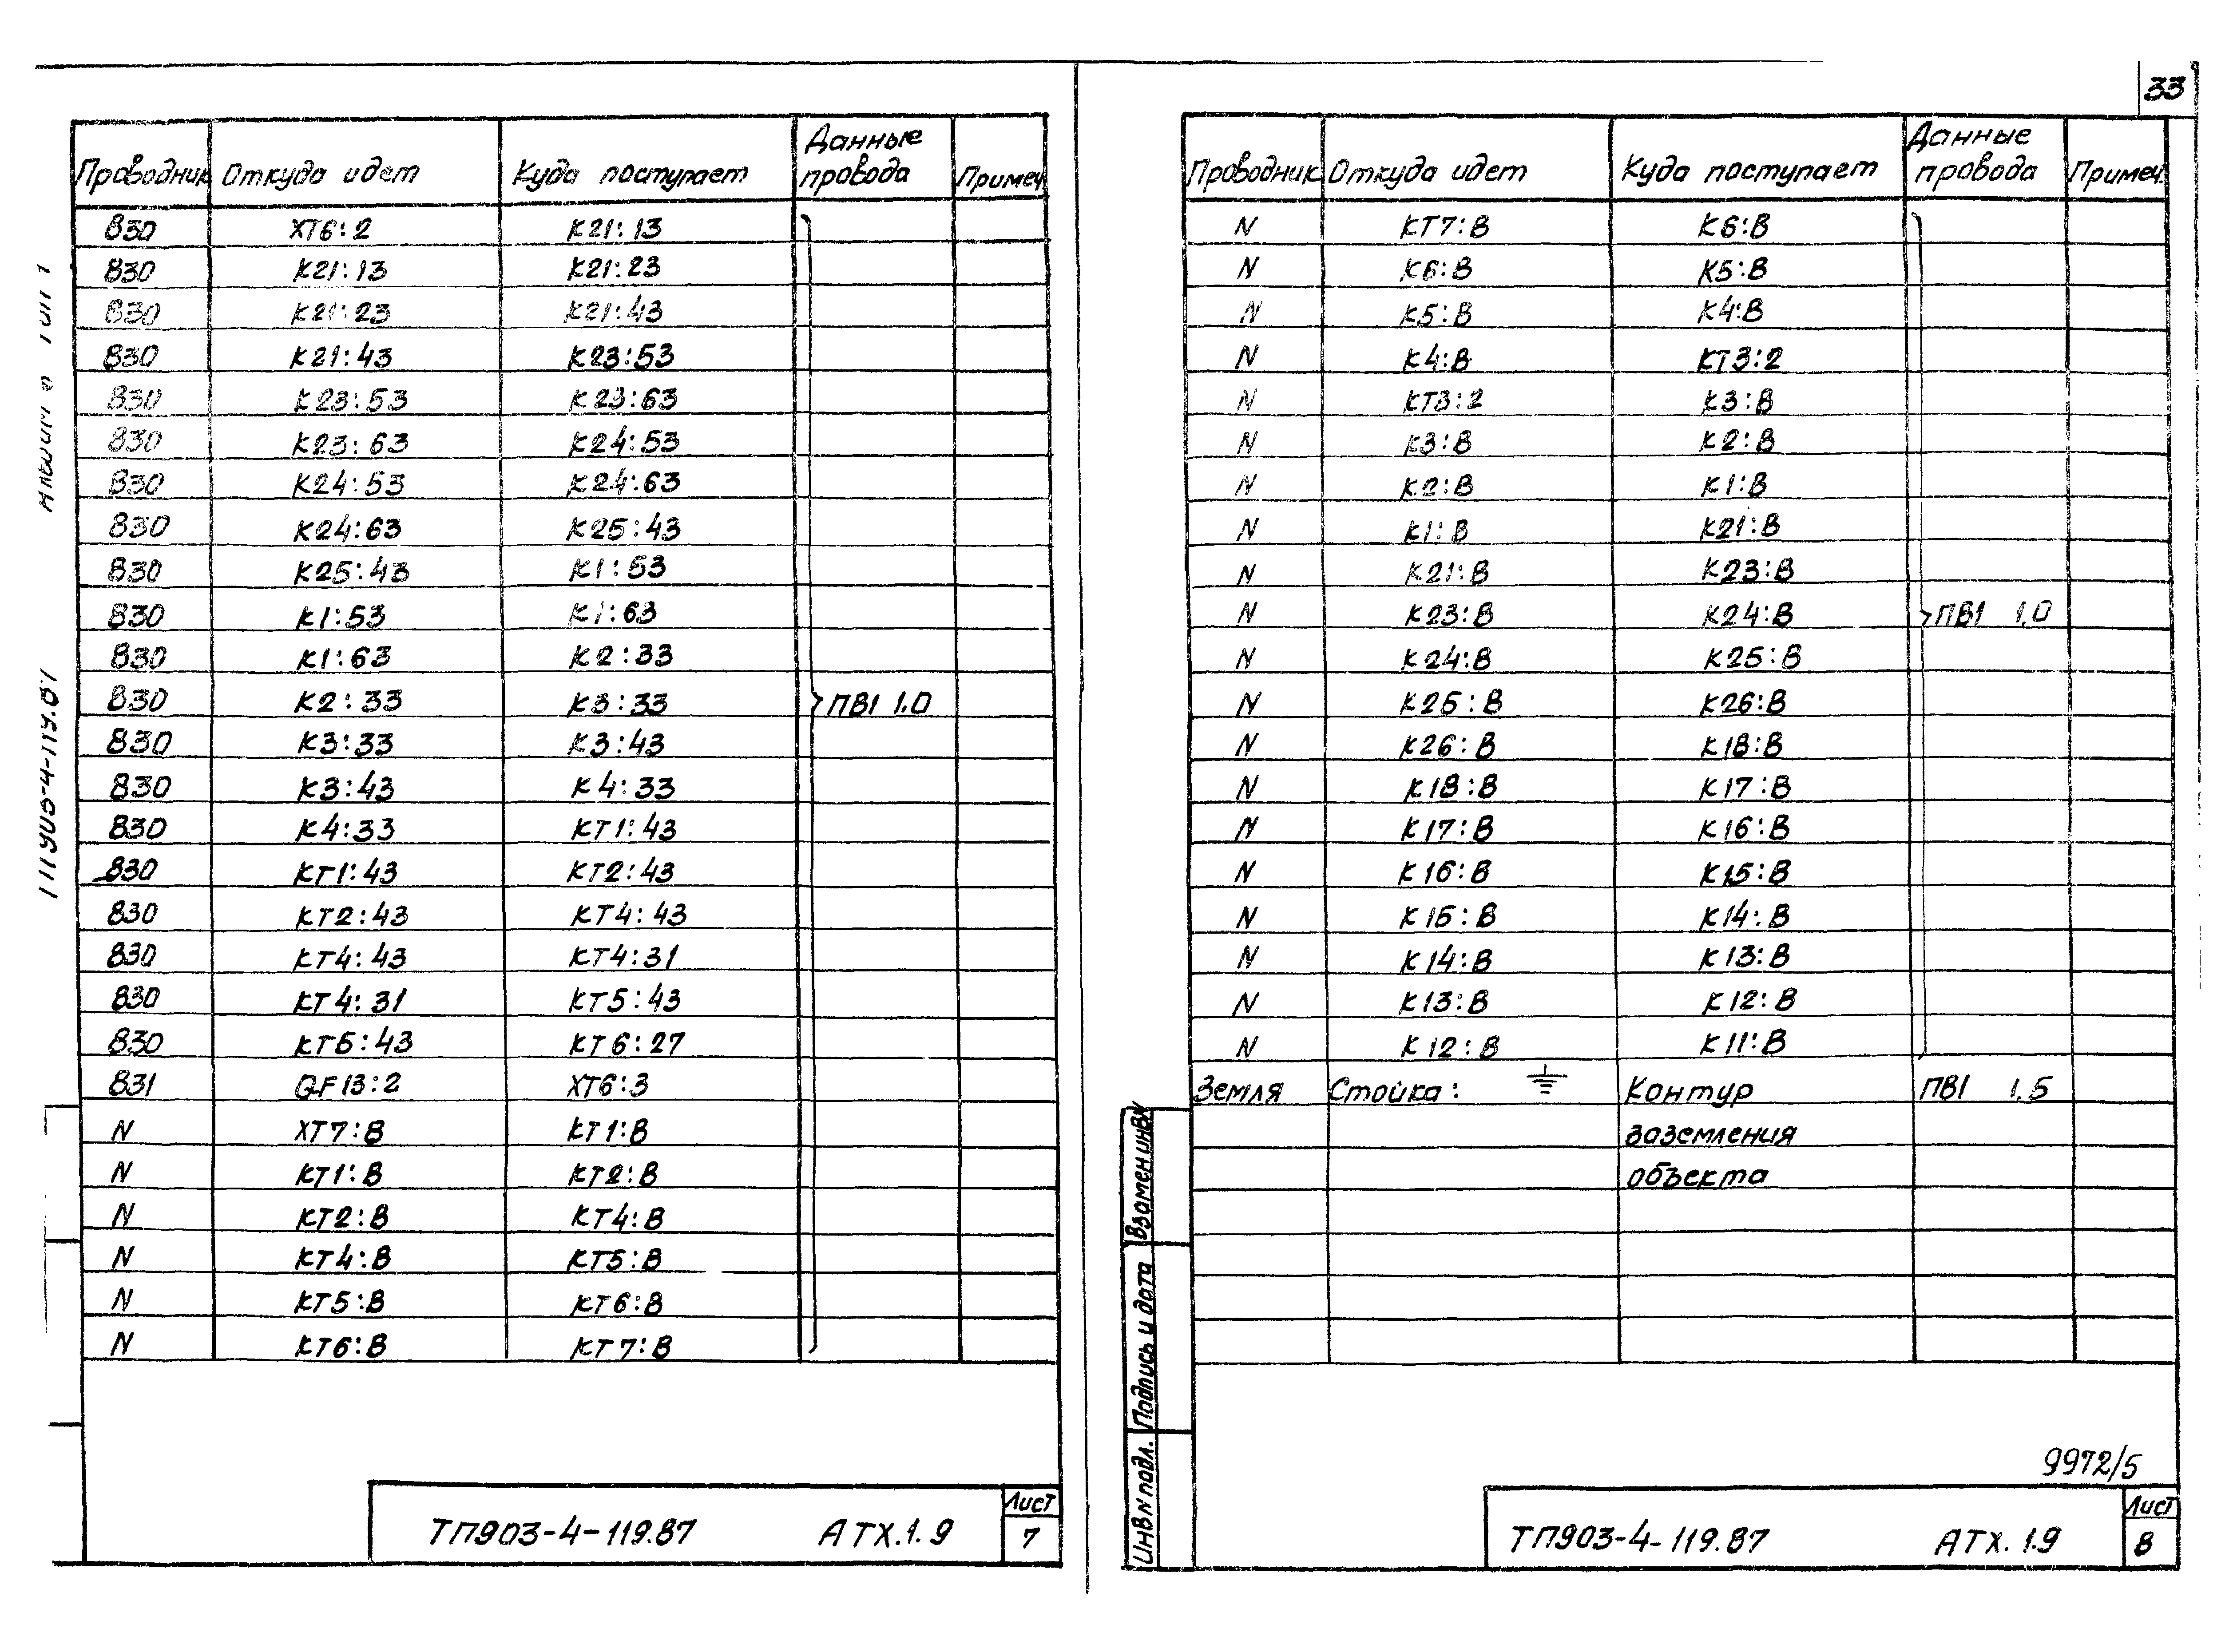 33
Проводник Откуда идет Куда поступает Данные провода Примеч.
830 XT6:2 K21:13
830 K21:13 K21:23
830 K21:23 K21:43
830 K21:43 K23:53
830 K23:53 K23:63
830 K23:63 K24:53
830 K24:53 K24:63
830 K24:63 K25:43
830 K25:43 K1:53
830 K1:53 K1:63
830 K1:63 K2:33
830 K2:33 K3:33 ПВ1 1.0
830 K3:33 K3:43
830 K3:43 K4:33
830 K4:33 KT1:43
830 KT1:43 KT2:43
830 KT2:43 KT4:43
830 KT4:43 KT4:31
830 KT4:31 KT5:43
830 KT5:43 KT6:27
831 QF13:2 XT6:3
N XT7:B KT1:B
N KT1:B KT2:B
N KT2:B KT4:B
N KT4:B KT5:B
N KT5:B KT6:B
N KT6:B KT7:B
ТП903-4-119.87 АТХ.1.9 Лист 7
Проводник Откуда идет Куда поступает Данные провода Примеч.
N KT7:B K6:B
N K6:B K5:B
N K5:B K4:B
N K4:B KT3:2
N KT3:2 K3:B
N K3:B K2:B
N K2:B K1:B
N K1:B K21:B
N K21:B K23:B
N K23:B K24:B ПВ1 1.0
N K24:B K25:B
N K25:B K26:B
N K26:B K18:B
N K18:B K17:B
N K17:B K16:B
N K16:B K15:B
N K15:B K14:B
N K14:B K13:B
N K13:B K12:B
N K12:B K11:B
Земля Стойка: ⏚ Контур ПВ1 1.5
заземления
объекта
Взамен инв.N
Подпись и дата
Инв N подл.
9972/5
ТП903-4-119.87 АТХ.1.9 Лист 8